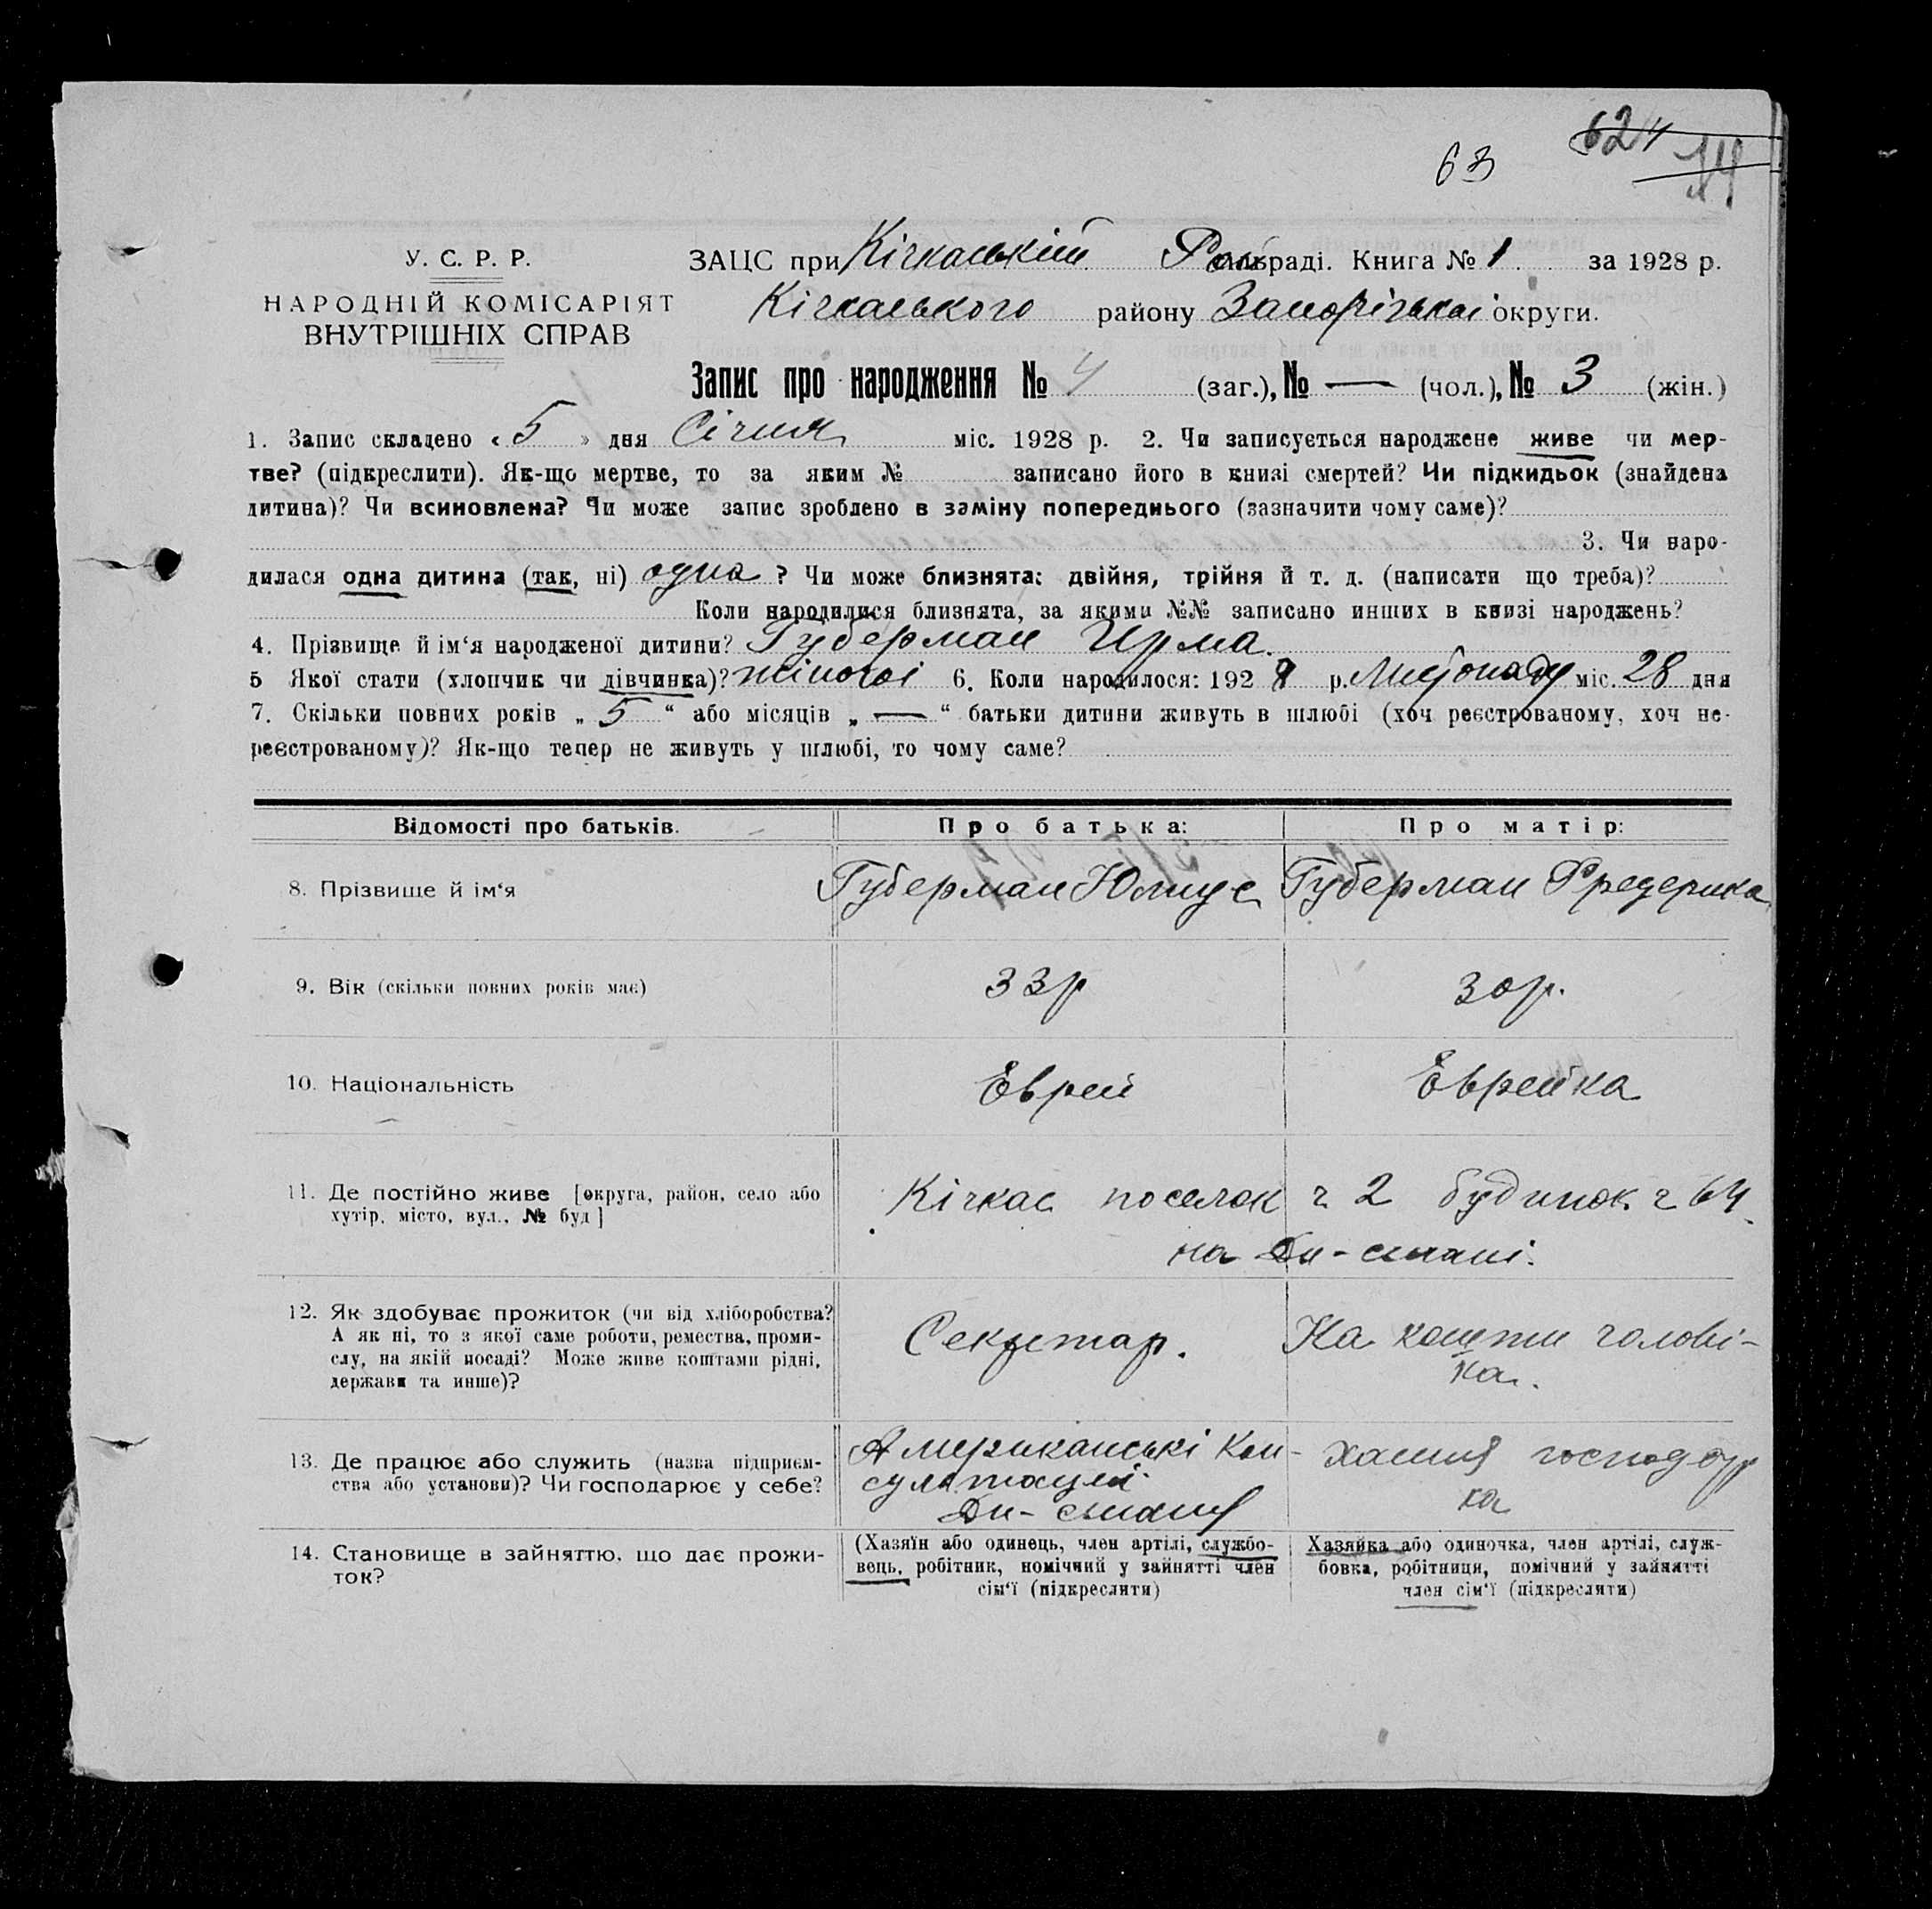 624
63 14
У. С. Р. Р. ЗАЦС при Кічкаський Рай раді. Книга № 1 за 1928 р.
НАРОДНІЙ КОМІСАРІЯТ Кічкаського району Запорізької округи.
ВНУТРІШНІХ СПРАВ
Запис про народження № 4 (заг.), № — (чол.), № 3 (жін.)
1. Запис складено « 5 » дня Січня міс. 1928 р. 2. Чи записується народжене живе чи мер-
тве? (підкреслити). Як-що мертве, то за яким № записано його в книзі смертей? Чи підкидьок (знайдена
дитина)? Чи всиновлена? Чи може запис зроблено в заміну попереднього (зазначити чому саме)?
3. Чи наро-
дилася одна дитина (так, ні) одна ? Чи може близнята: двійня, трійня й т. д. (написати що треба)?
Коли народилися близнята, за якими №№ записано инших в книзі народжень?
4. Прізвище й ім'я народженої дитини? Губерман Ирма.
5 Якої стати (хлопчик чи дівчинка)? жіночої 6. Коли народилося: 192 р. Листопаду міс. 28 дня
7. Скільки повних років „ 5 “ або місяців „ — “ батьки дитини живуть в шлюбі (хоч реєстрованому, хоч не-
реєстрованому)? Як-що тепер не живуть у шлюбі, то чому саме?
Відомості про батьків. Про батька: Про матір:
8. Прізвище й ім'я Губерман Юлиус Губерман Фредерика
9. Вік (скільки повних років має) 33р 30р.
10. Національність Еврей Еврейка
11. Де постійно живе [округа, район, село або Кічкас поселок ч 2 будинок ч 64
хутір, місто, вул., № буд] на Дн-стані.
12. Як здобуває прожиток (чи від хліборобства? Секретар. На кошти чолові-
А як ні, то з якої саме роботи, ремества, проми- ка.
слу, на якій посаді? Може живе коштами рідні,
держави та инше)?
13. Де працює або служить (назва підприєм- Американські Кон- хатня господар
ства або установи)? Чи господарює у себе? сультації ка
Дн-стану
14. Становище в зайняттю, що дає прожи- (Хазяїн або одинець, член артілі, службо- Хазяйка або одиночка, член артілі, служ-
ток? вець, робітник, помічний у зайнятті член бовка, робітниця, помічний у зайнятті
сім'ї (підкреслити) член сім'ї (підкреслити)